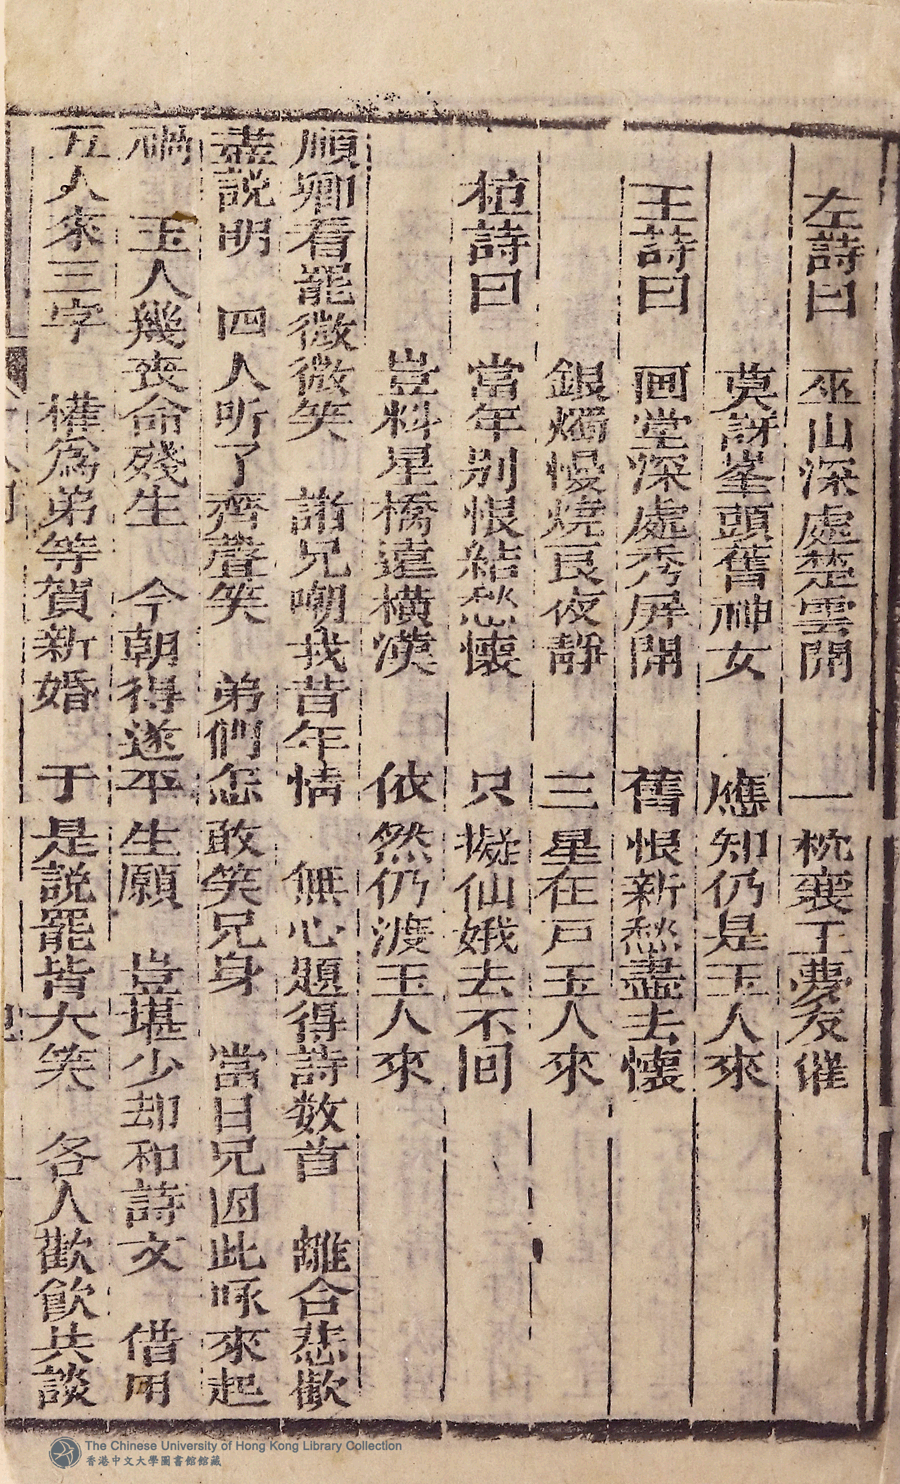 左詩曰　巫山深處楚雲開　一枕襄王夢友催
莫訝峯頭舊神女　應知仍是玉人來
王詩曰　画堂深處秀屏開　舊恨新愁盡去懷
銀燭慢燒良夜靜　三星在戸玉人來
桓詩曰　當年别恨結愁懷　只擬仙娥去不囬
豈料星橋遠橫漢　依然仍渡玉人來
順卿看罷微微笑　諧兄嘲我昔年情　無心題得詩数首　離合悲歡
盡説明　四人听了齊聲笑　弟們怎敢笑兄身　當日兄因此咏來起
禍　玉人幾喪命殘生　今朝得遂平生願　豈堪少却和詩文　借用
玉人來三字　權爲弟等賀新婚　于是説罷皆大笑　各人歡飲共談
The Chinese University of Hong Kong Library Collection
香港中文大學圖書館館藏